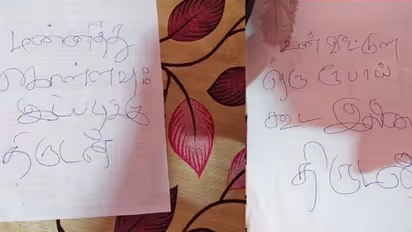 மன்னித்து
கொள்ளவும்
இப்படிக்கு
திருடன்
உன் வீட்டுல
ஒரு ரூபாய்
கூட இல்லை
திருடன்